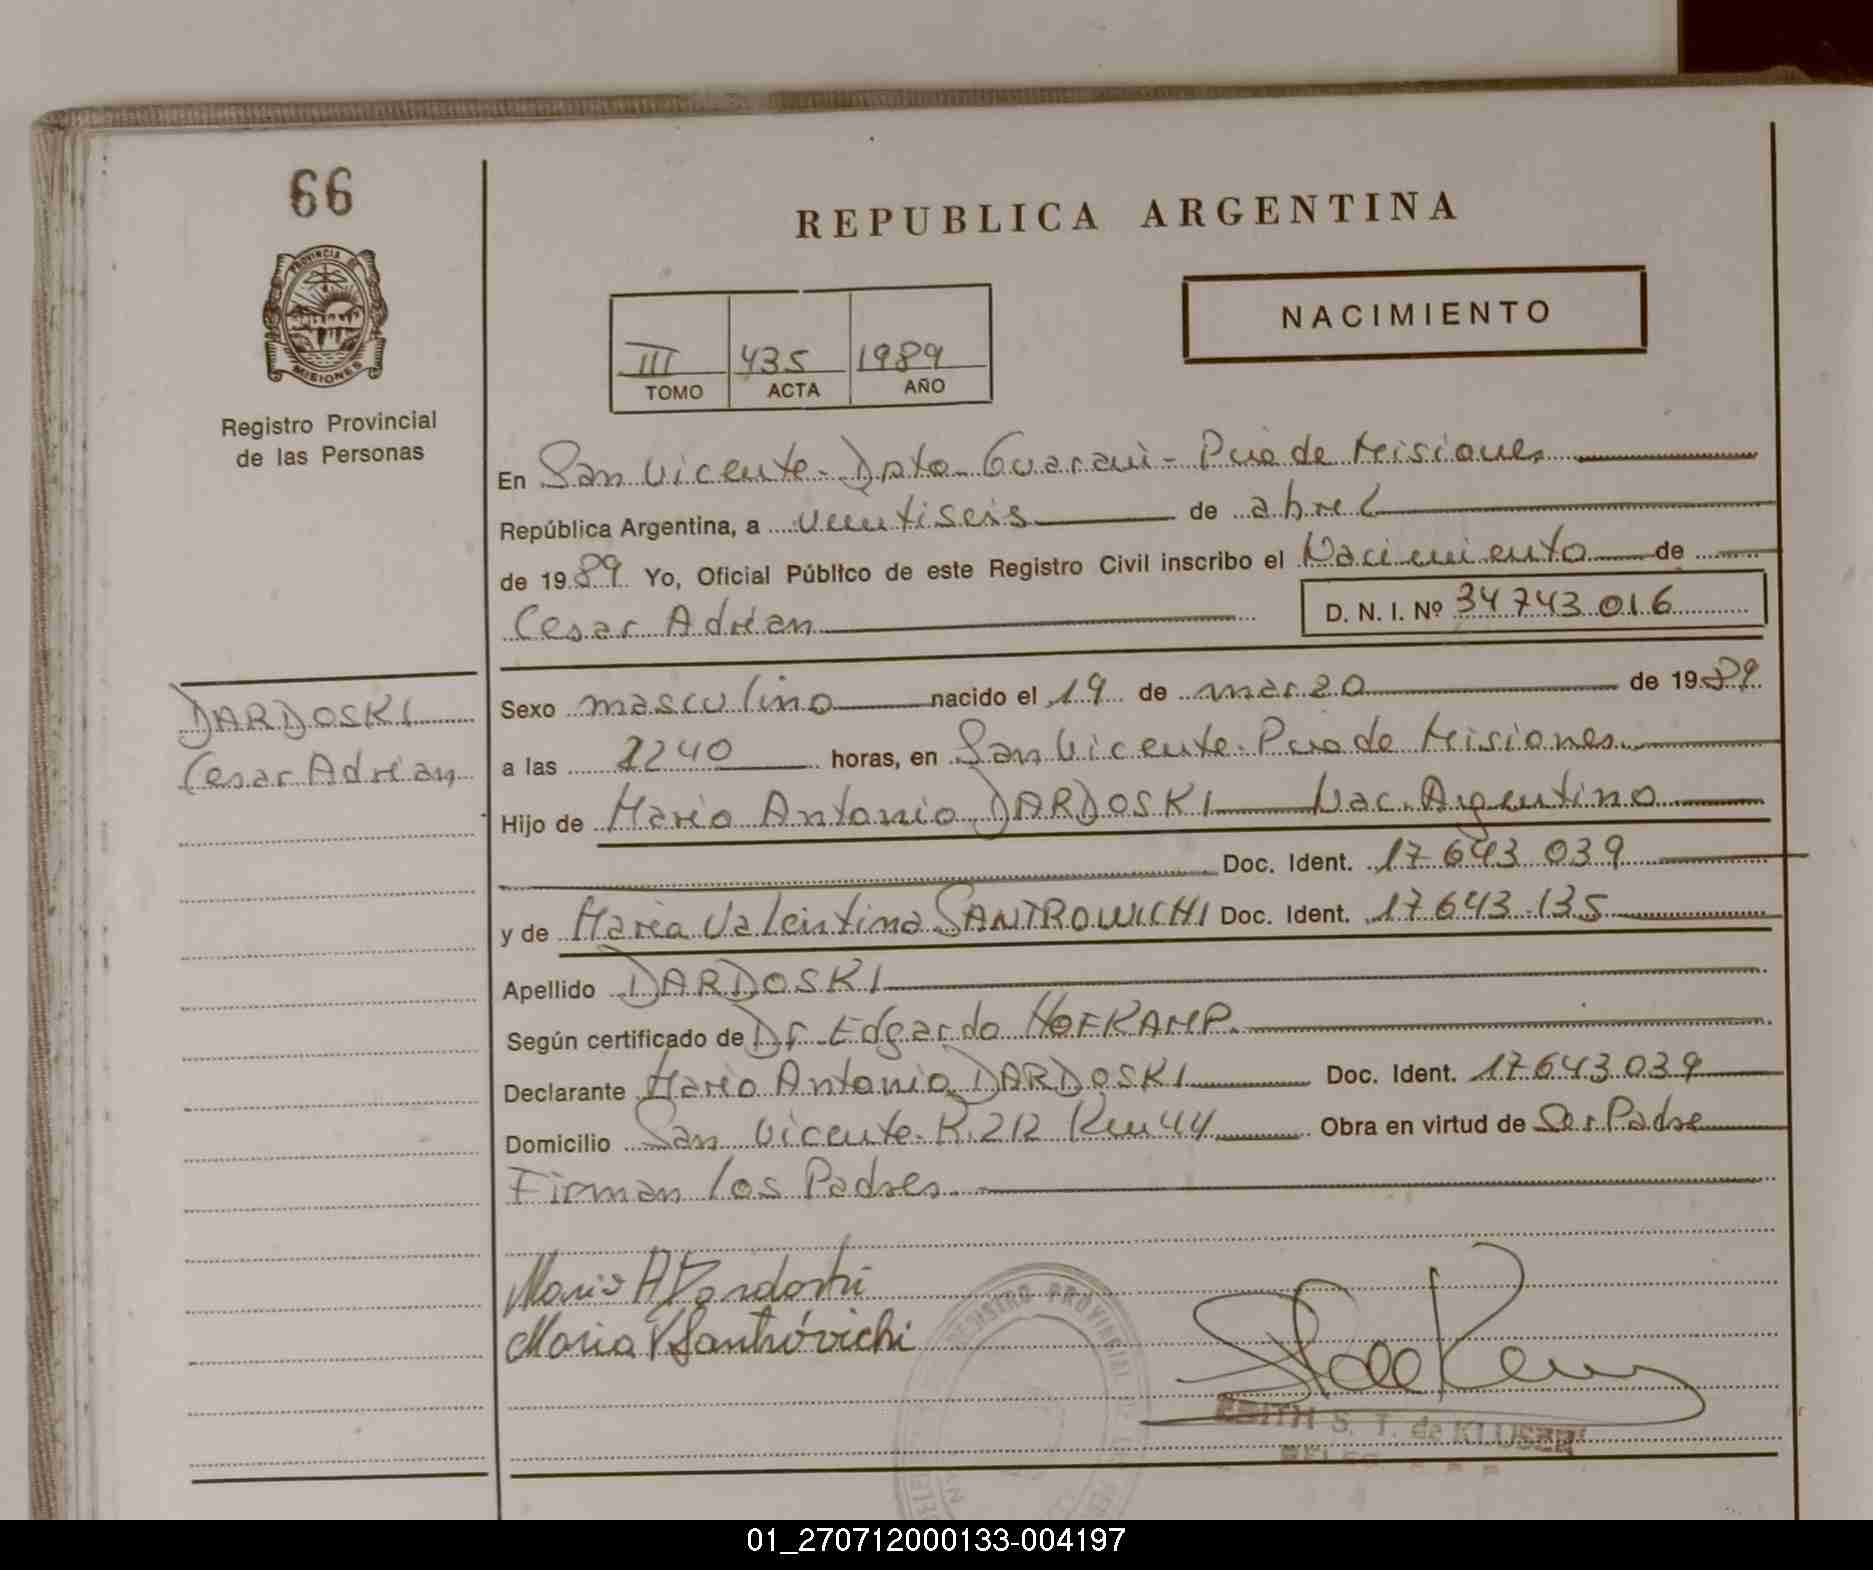 66
PROVINCIA DE
MISIONES
Registro Provincial
de las Personas
REPUBLICA ARGENTINA
NACIMIENTO
III 435 1989
TOMO ACTA AÑO
En San Vicente - Dpto Guaraní - Pcia de Misiones
República Argentina, a veintiseis de abril
de 1989 Yo, Oficial Público de este Registro Civil inscribo el Nacimiento de
Cesar Adrian D. N. I. Nº 34 743 016
DARDOSKI
Cesar Adrian
Sexo masculino nacido el 19 de marzo de 1989
a las 2240 horas, en San Vicente. Pcia de Misiones
Hijo de Mario Antonio DARDOSKI Nac. Argentino
Doc. Ident. 17 643 039
y de Maria Valentina SANTROWICHI Doc. Ident. 17 643 135
Apellido DARDOSKI
Según certificado de Dr. Edgardo HOFKAMP
Declarante Mario Antonio DARDOSKI Doc. Ident. 17 643 039
Domicilio San Vicente. R. 212 Km 44 Obra en virtud de Ser Padre
Firman los Padres
Mario A Dardoski
Maria V Santróvichi
REGISTRO PROVINCIAL
EDITH S. T. de KLUSER
01_270712000133-004197